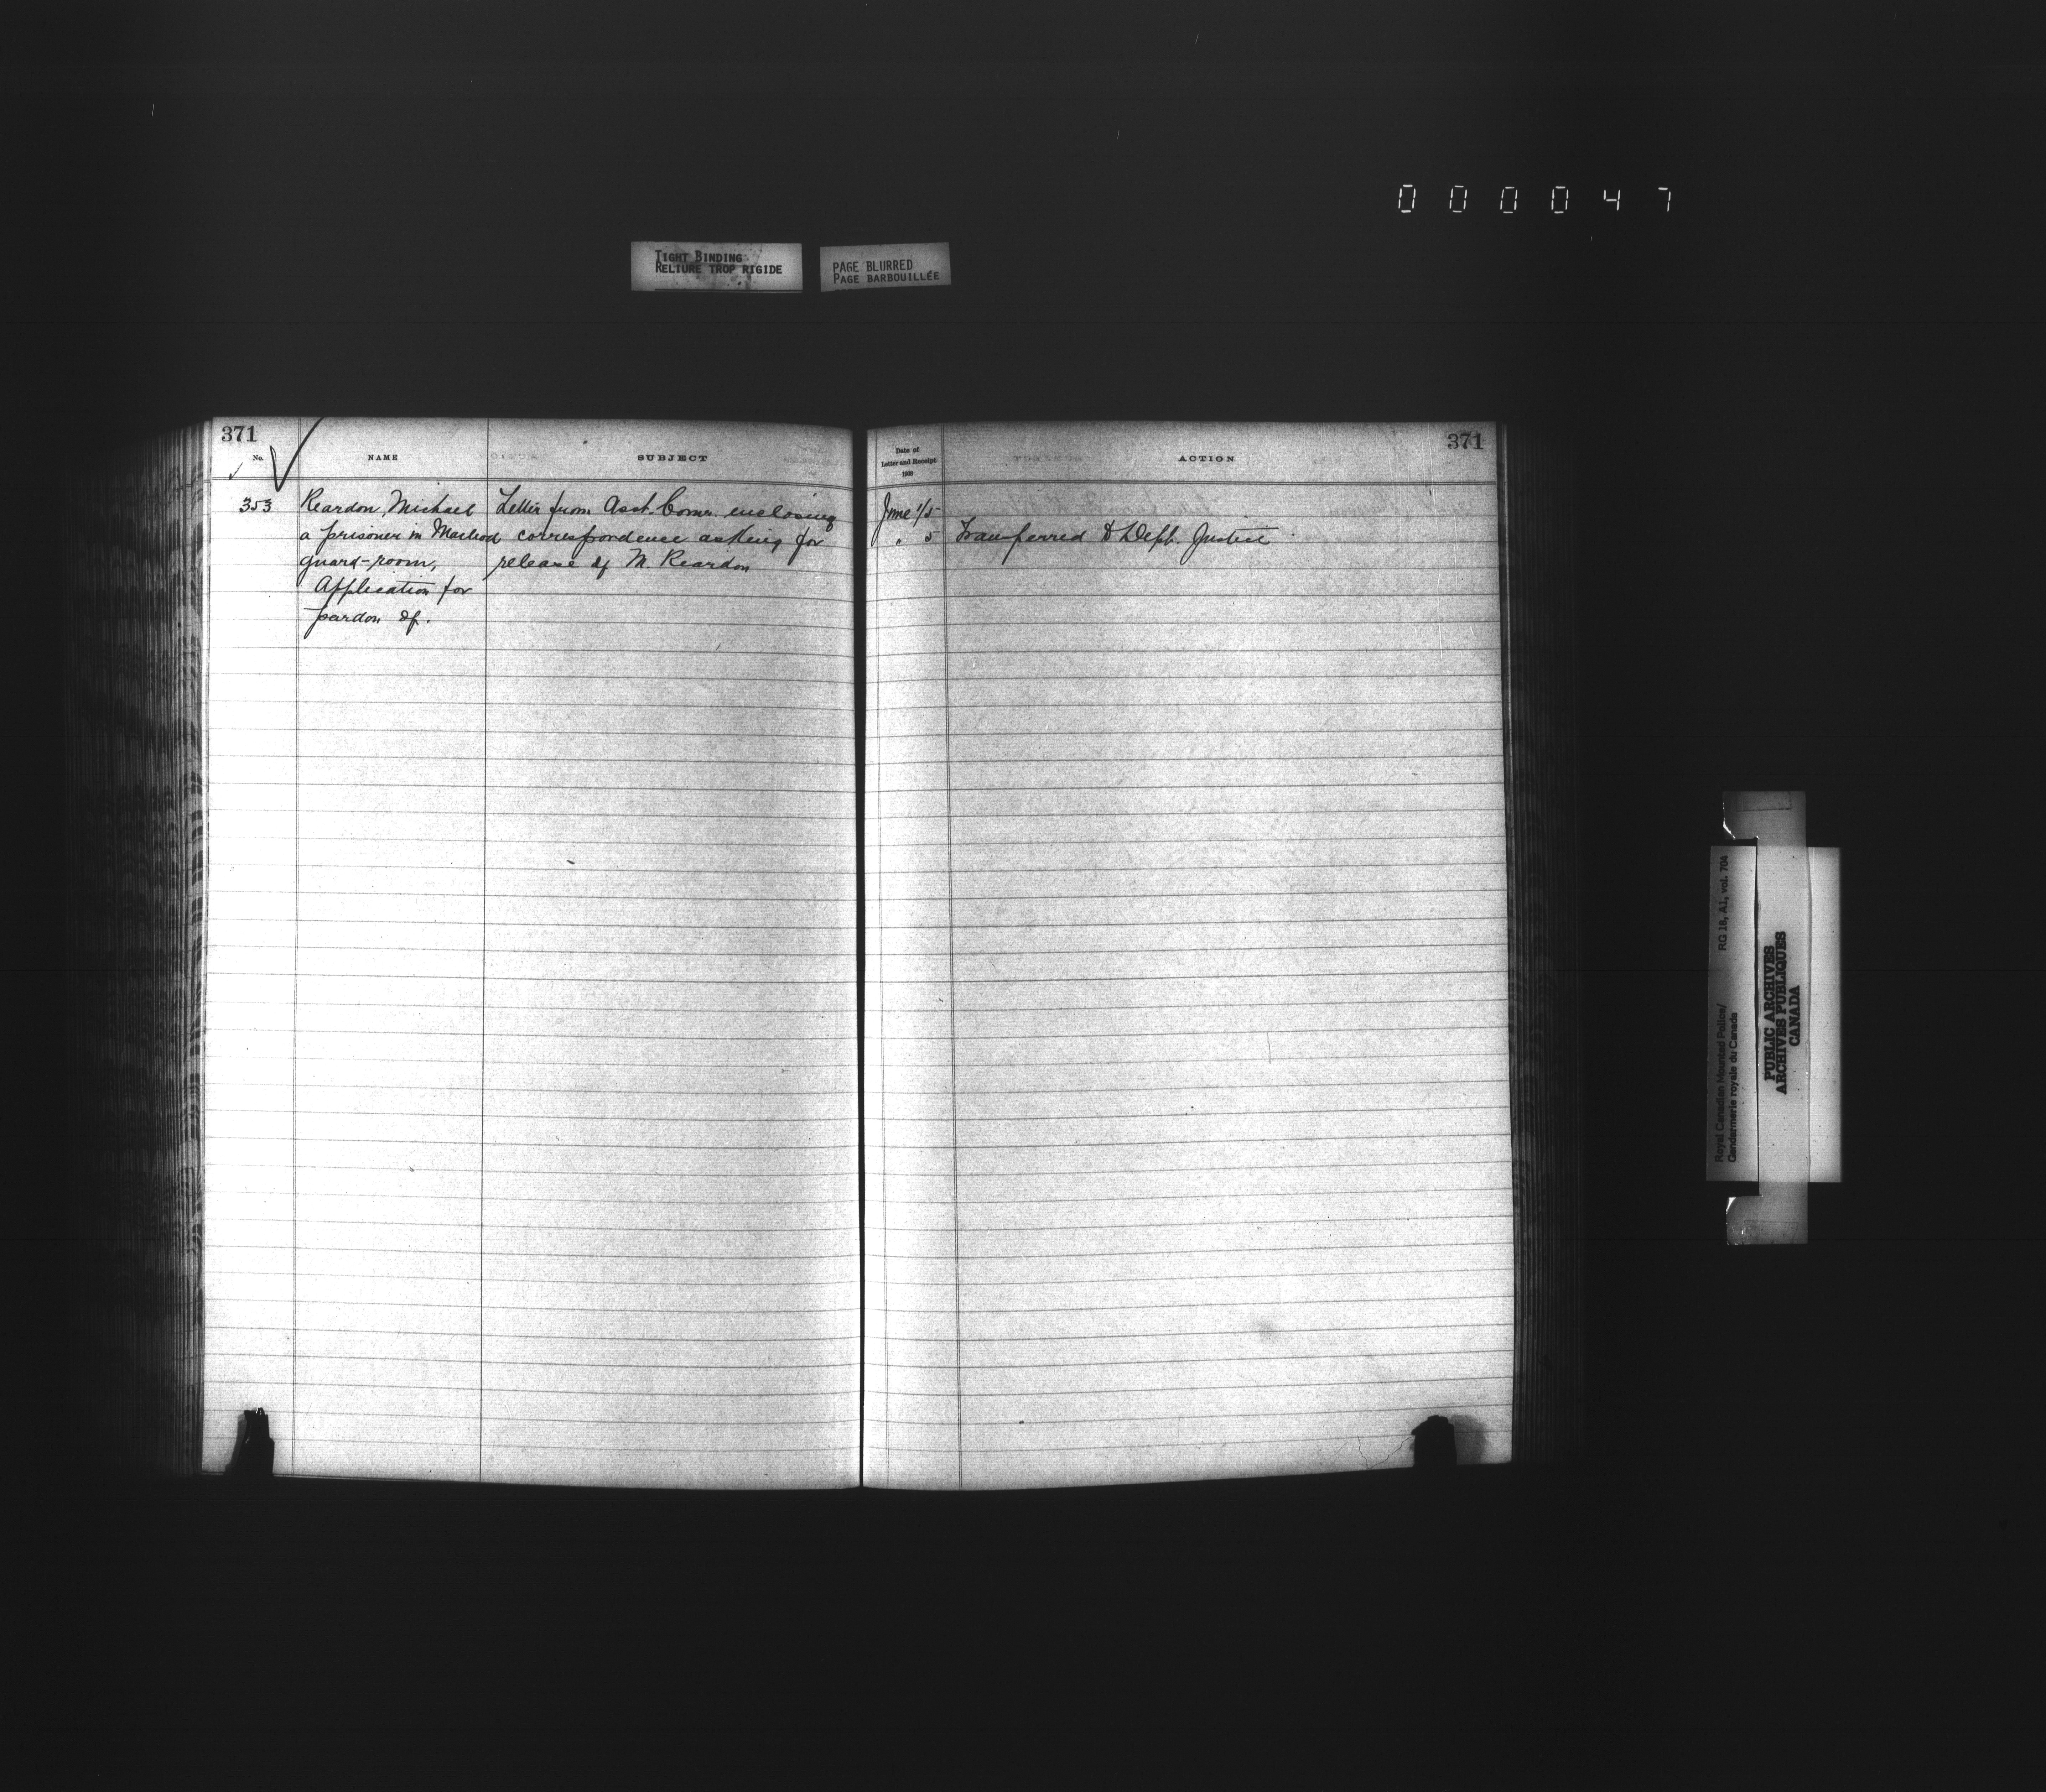 000047
TIGHT BINDING
RELIURE TROP RIGIDE
PAGE BLURRED
PAGE BARBOUILLÉE
371
No.
NAME
SUBJECT
353
Reardon, Michael
a prisoner in Macleod
guard-room,
Application for
pardon of.
Letter from Asst. Comr. enclosing
correspondence asking for
release of M. Reardon
371
Date of
Letter and Receipt
ACTION
June 1/5
" 5 Transferred to Dept. Justice
Royal Canadian Mounted Police/
Gendarmerie royale du Canada
RG 18, A1, vol. 704
PUBLIC ARCHIVES
ARCHIVES PUBLIQUES
CANADA